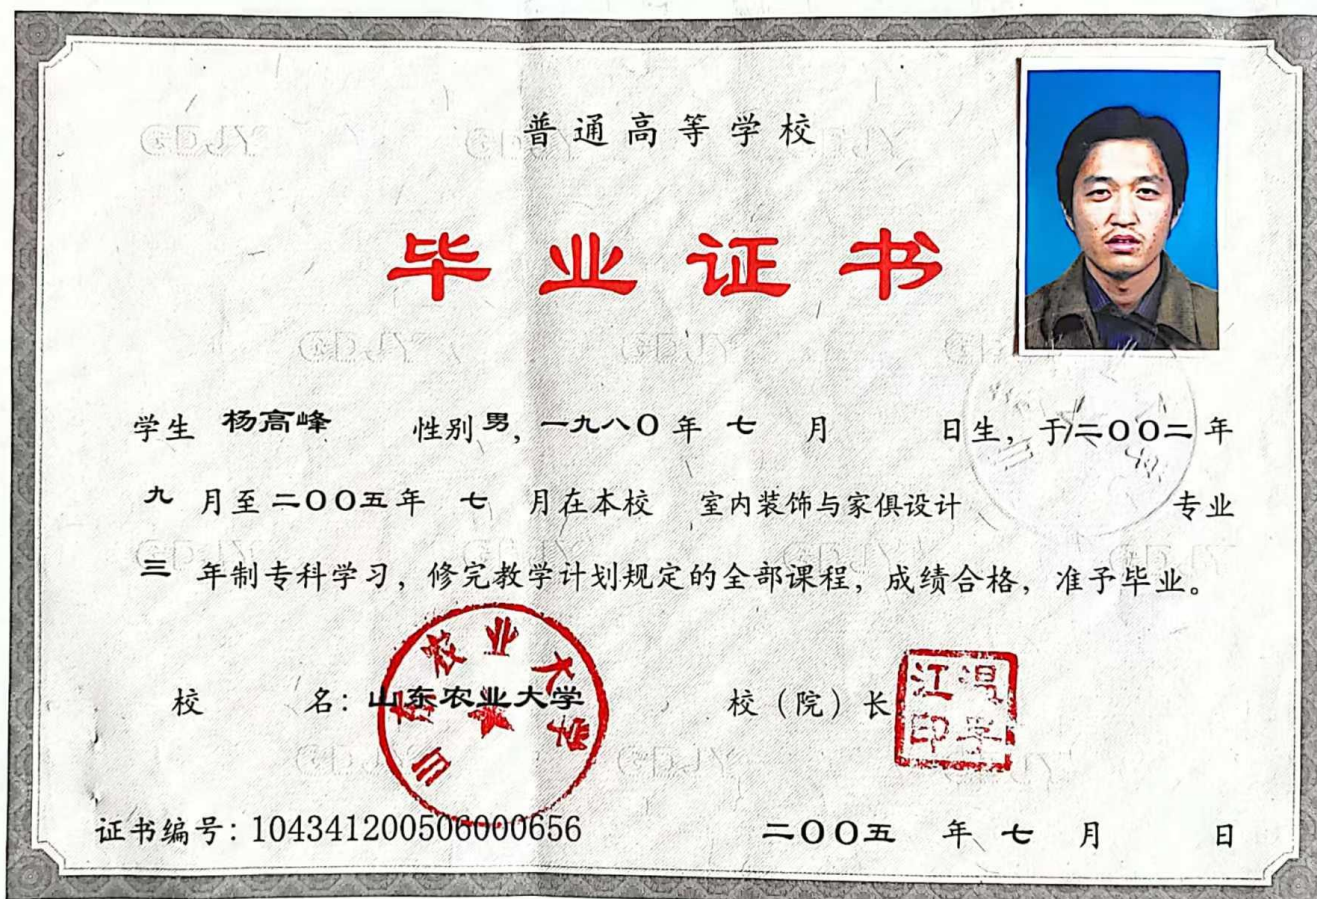 普通高等学校
毕业证书
学生 杨高峰 性别 男, 一九八〇 年 七 月 日生, 于 二〇〇二 年
九 月至 二〇〇五 年 七 月在本校 室内装饰与家俱设计 专业
三 年制专科学习, 修完教学计划规定的全部课程, 成绩合格, 准予毕业。
校 名: 山东农业大学 校(院)长
山东农业大学
证书编号: 104341200506000656 二〇〇五 年 七 月 日